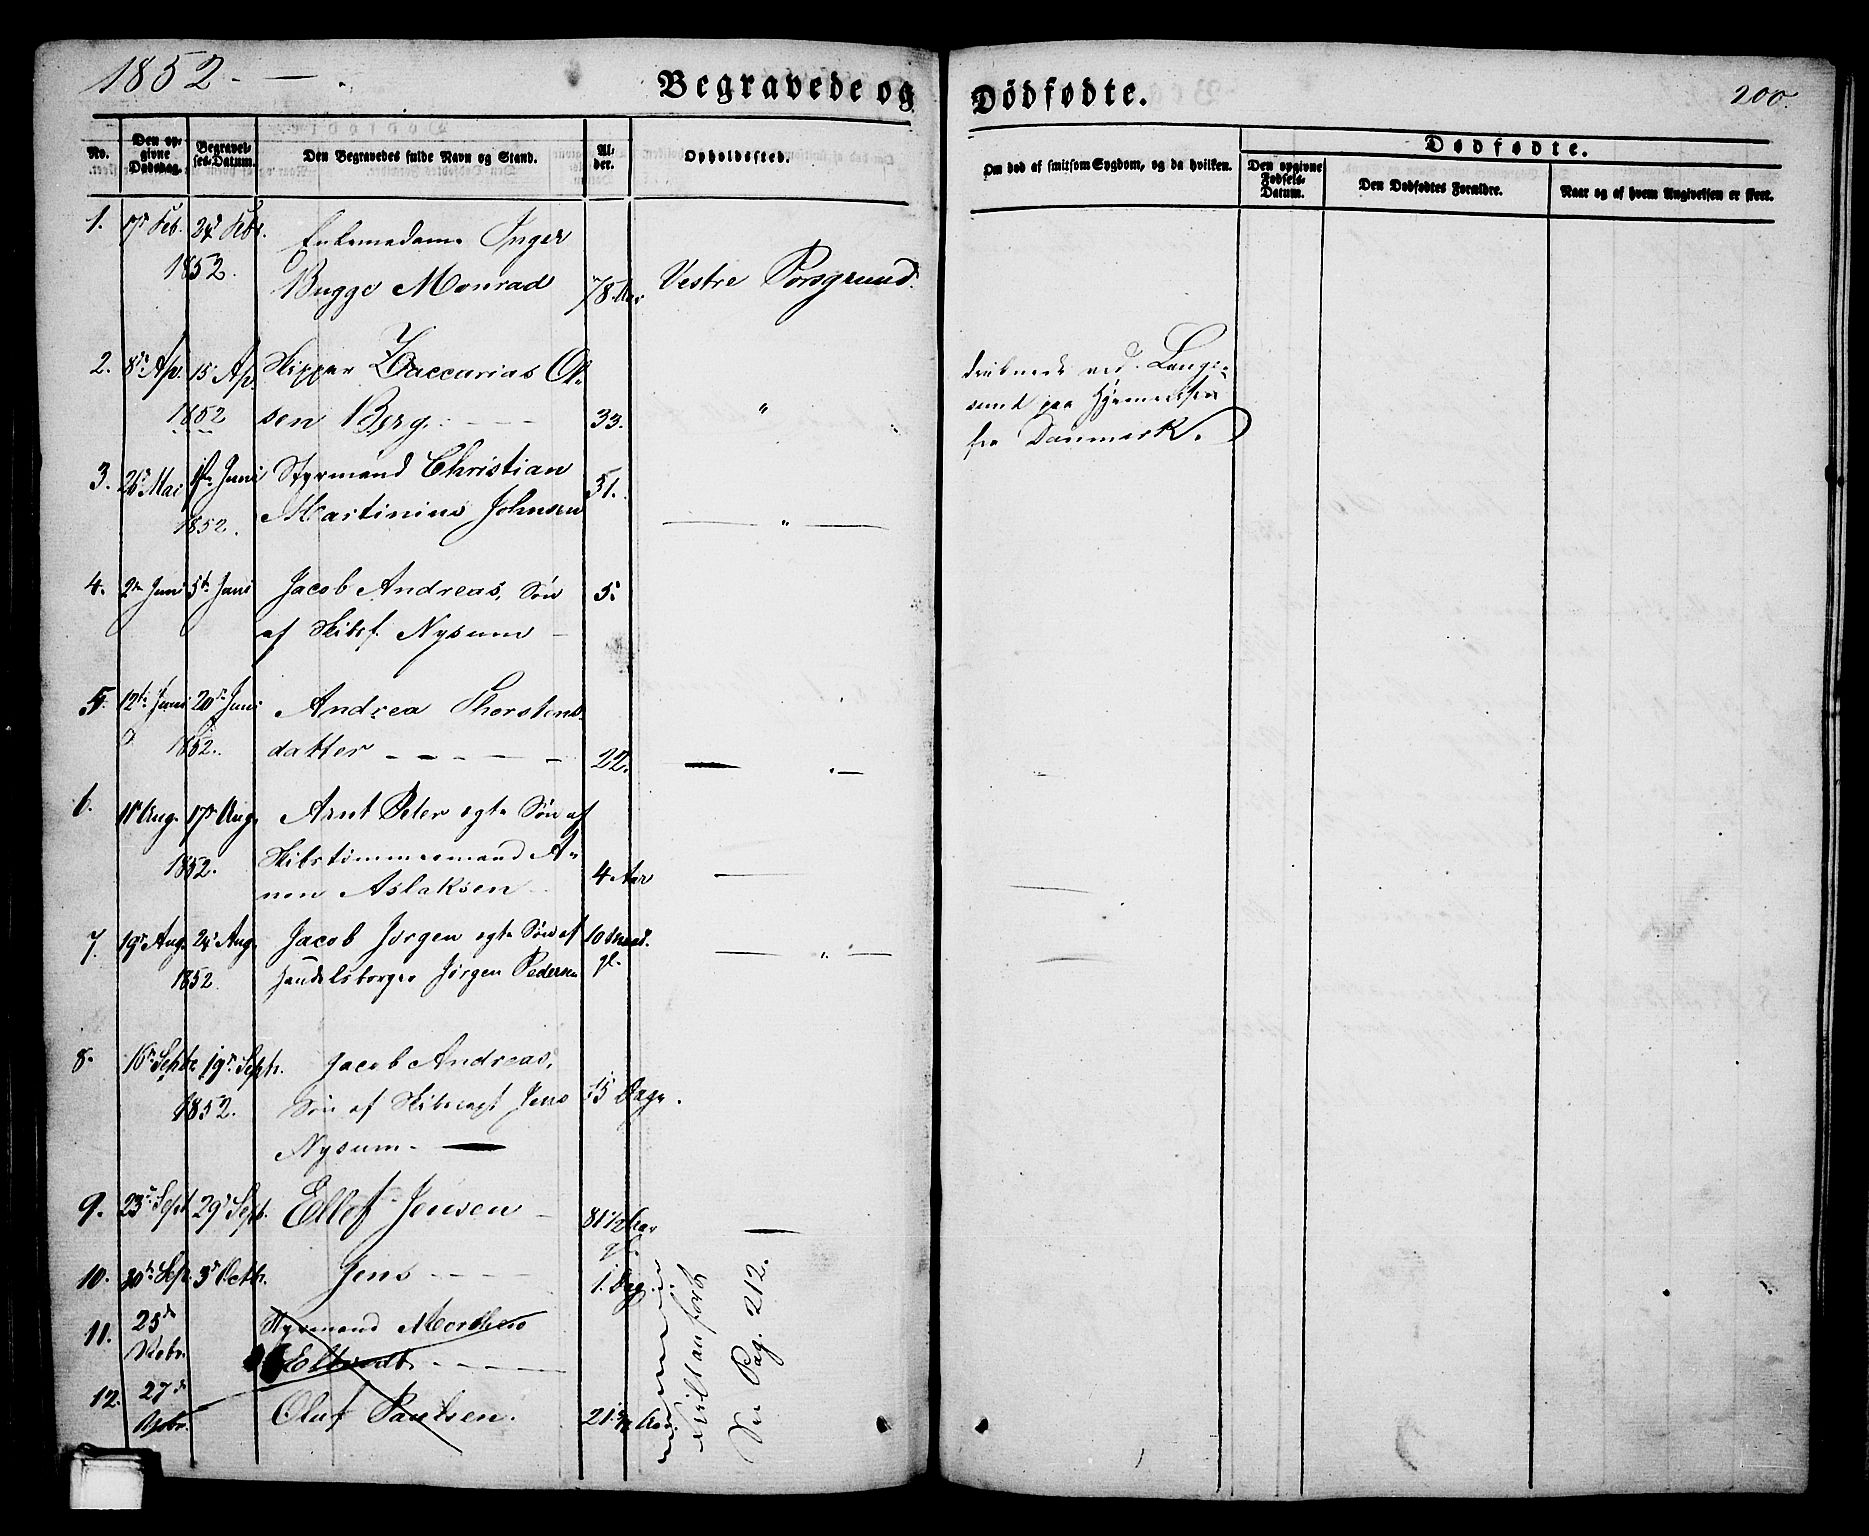 1852. — .
Begravede og
Dödfødte.
200.
No.
Den op-
givne
Dødsdag.
Begravel-
ses-Datum.
Den Begravedes fulde Navn og Stand.
Al-
der.
Opholdssted.
Om død af smitsom Sygdom, og da hvilken.
Dødfødte.
Den opgivne
Fødsels-
Datum.
Den Dødfødtes Forældre.
Naar og af hvem Angivelsen er skeet.
1. 17 Feb. 24 Febr. Enkemadame Inger
1852. Bugge Monrad 78 Aar Vestre Porsgrund.
2. 8de Ap. 15 Ap. Skipper Zaccarias Ol-
1852 sen Berg. - - - 33. "
druknede ved Lange-
sund paa Hjemreisen
fra Danmark.
3. 26 Mai 1ste Juni Styrmand Christian 51.
1852. Martinius Johnsen — " —
4. 2den Juni 5te Juni Jacob Andreas, Søn 5.
af Skibsf. Nysum —
5. 12te Juni 20de Juni Andrea Thorstens-
1852. datter - - - - - 22. — . —
6. 11te Aug. 17de Aug. Arnt Peter egte Søn af
1852. Skibstømmermand A-
nen Aslaksen 4 Aar —
7. 19de Aug. 24 Aug. Jacob Jørgen egte Søn af 10 Maad.
1852 Handelsborger Jørgen Pedersen gl. — " —
8. 16de Septbr 19de Septbr. Jacob Andreas,
1852. Søn af Skibscapt Jens 15 Dage.
Nysum. —
9. 23de Sept 29de Septb. Ellef Jensen — 81 1/2 Aar —
gl.
10. 30te Sep. 3de Octbr. Jens - - - - 1. Dag.
11. 25de Styrmand Morthens
Nobr. Ellevodt. - - - -
12. 27de Oluf Paulsen. 21 Aar
Nobr.
hvilt anførb
See Pag. 212.